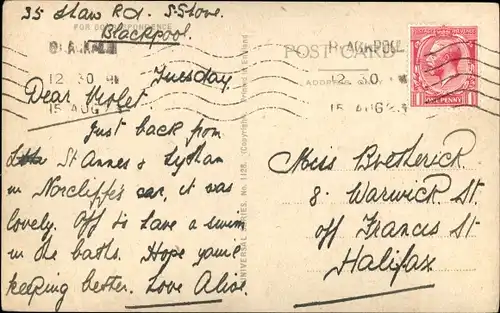 35 Shaw Rd. S. Shore.
Blackpool.
FOR CORRESPONDENCE
Tuesday
Dear Violet
Just back from
St Annes & Lytham
in Norcliffe's car, it was
lovely. Off to have a swim
in the baths. Hope you're
keeping better. Love Alice.
UNIVERSAL SERIES. No. 1128. (Copyright). Printed in England
POST CARD
ADDRESS ONLY
BLACKPOOL
12 30 PM
15 AUG
BLACKPOOL
12 30
15 AUG
ONE PENNY
1 1
Miss Bretherick
8. Warwick St.
off Francis St
Halifax